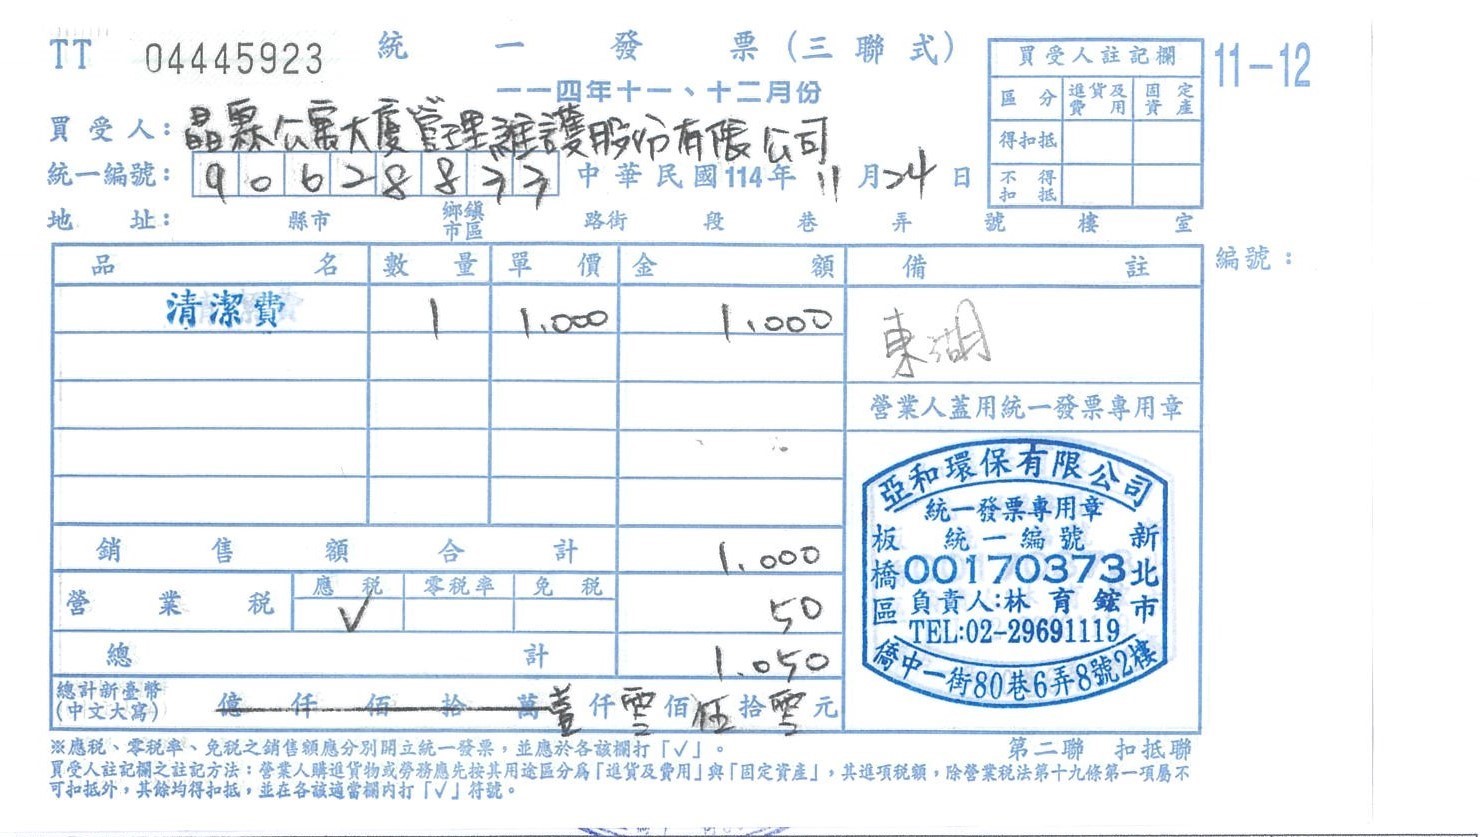 TT 04445923 統一發票(三聯式)
一一四年十一、十二月份
11-12
買受人註記欄
區分 進貨及費用 固定資產
得扣抵
不得扣抵
買受人: 晶霖公寓大廈管理維護股份有限公司
統一編號: 90628833 中華民國114年 11 月 24 日
地址: 縣市 鄉鎮市區 路街 段 巷 弄 號 樓 室
編號:
品名 數量 單價 金額 備註
清潔費 1 1.000 1.000 東湖
營業人蓋用統一發票專用章
銷售額合計 1.000
營業稅 應稅 零稅率 免稅
√ 50
總計 1.050
總計新臺幣
(中文大寫) 億 仟 佰 拾 萬 壹 仟 零 佰 伍 拾 零 元
亞和環保有限公司
統一發票專用章
統一編號
00170373
負責人:林育鋐
TEL:02-29691119
新北市
板橋區
僑中一街80巷6弄8號2樓
※應稅、零稅率、免稅之銷售額應分別開立統一發票,並應於各該欄打「√」。
第二聯 扣抵聯
買受人註記欄之註記方法:營業人購進貨物或勞務應先按其用途區分為「進貨及費用」與「固定資產」,其進項稅額,除營業稅法第十九條第一項屬不
可扣抵外,其餘均得扣抵,並在各該適當欄內打「√」符號。